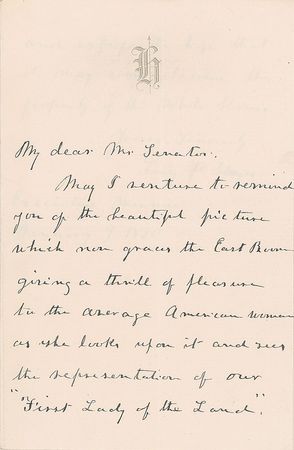 H
My dear Mr. Senator.
May I venture to remind
you of the beautiful picture
which now graces the East Room
giving a thrill of pleasure
to the average American woman
as she looks upon it and sees
the representation of our
"First Lady of the Land".